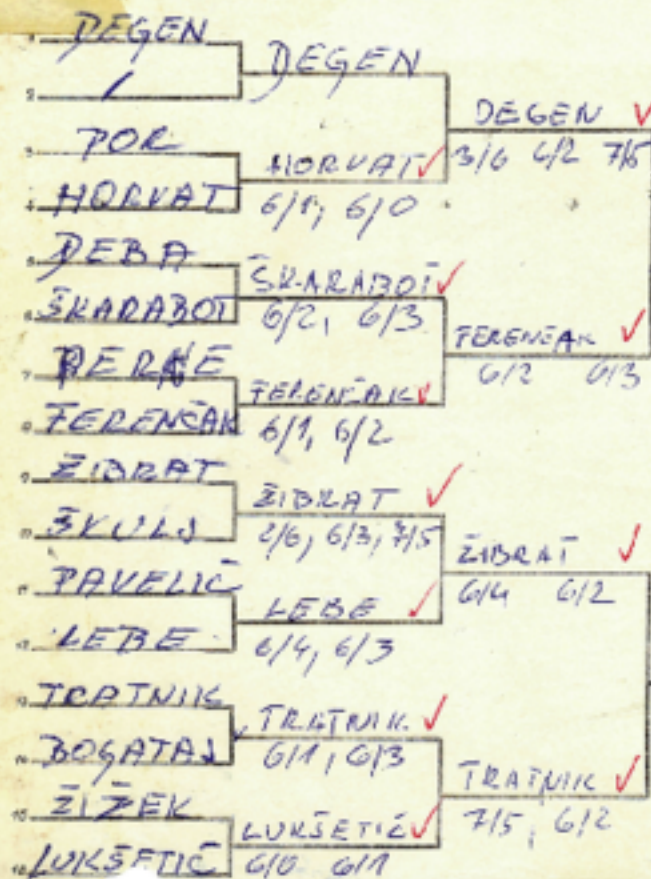 1 DEGEN
2 /
3 POR
4 HORVAT
5 DEBA
6 ŠKARABOT
7
8 FERENČAK
9 ŽIBRAT
10 ŠKULJ
11 PAVELIČ
12 LEBE
13 TRATNIK
14 BOGATAJ
15 ŽIŽEK
16 LUKŠETIČ
DEGEN
HORVAT
6/1, 6/0
ŠKARABOT
6/2, 6/3
FERENČAK
6/1, 6/2
ŽIBRAT
2/6, 6/3, 7/5
LEBE
6/4, 6/3
TRATNIK
6/1, 6/3
LUKŠETIČ
6/0 6/1
DEGEN
3/6 6/2 7/5
FERENČAK
6/2 6/3
ŽIBRAT
6/4 6/2
TRATNIK
7/5, 6/2